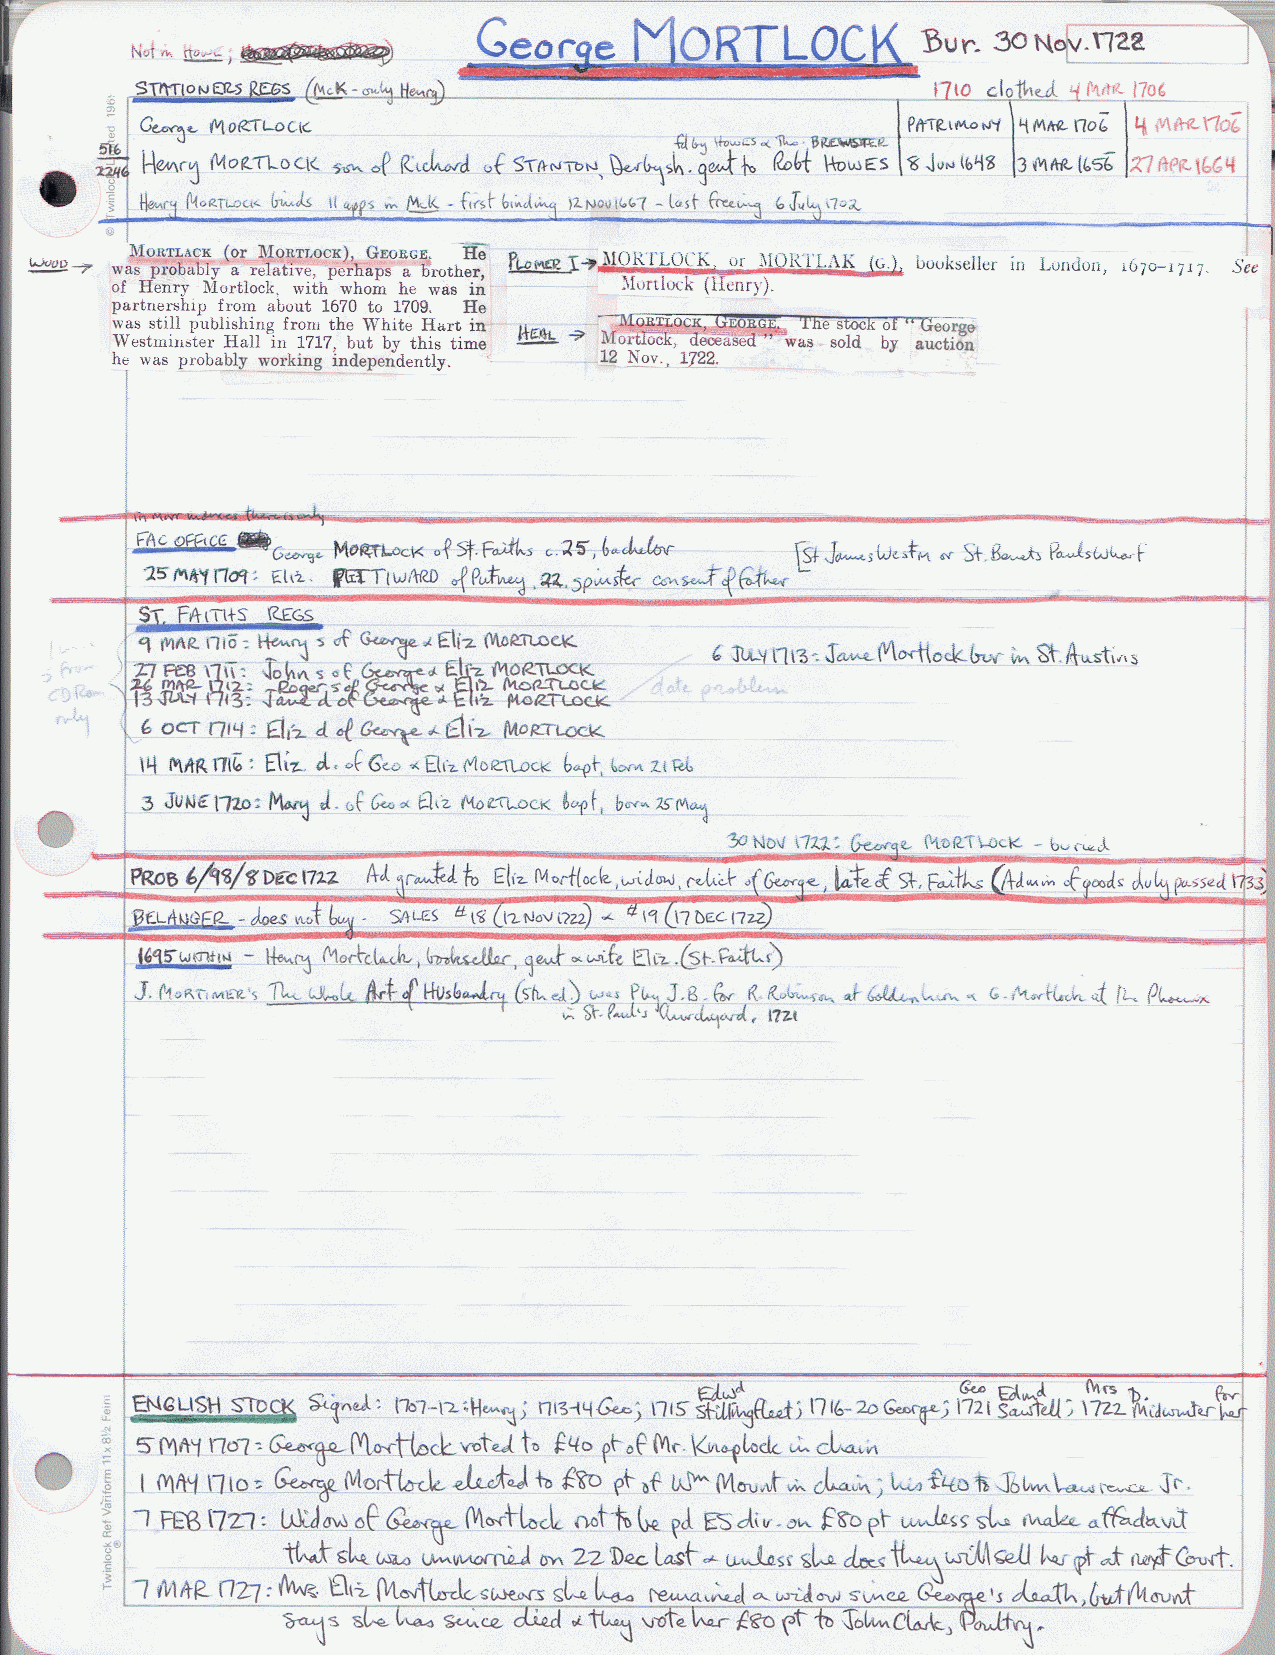 Not in Howe;
George MORTLOCK
Bur. 30 Nov. 1722
STATIONERS REGS (McK - only Henry)
1710 clothed 4 MAR 1706
George MORTLOCK PATRIMONY 4 MAR 1706 4 MAR 1706
fd by Howes & Tho. BREWSTER
516
2246
Henry MORTLOCK son of Richard of STANTON, Derbysh. gent to Robt HOWES 8 JUN 1648 3 MAR 1656 27 APR 1664
Henry MORTLOCK binds 11 apps in McK - first binding 12 NOV 1667 - last freeing 6 July 1702
WOOD →
MORTLACK (or MORTLOCK), GEORGE. He
was probably a relative, perhaps a brother,
of Henry Mortlock, with whom he was in
partnership from about 1670 to 1709. He
was still publishing from the White Hart in
Westminster Hall in 1717, but by this time
he was probably working independently.
PLOMER I →
MORTLOCK, or MORTLAK (G.), bookseller in London, 1670–1717. See
Mortlock (Henry).
HEAL →
MORTLOCK, GEORGE. The stock of "George
Mortlock, deceased" was sold by auction
12 Nov., 1722.
in Marr indexes there is only
FAC OFFICE George MORTLOCK of St. Faiths c. 25, bachelor [St James Westm or St. Benets Paulswharf
25 MAY 1709: Eliz. PETTIWARD of Putney, 22, spinster consent of father
ST. FAITHS REGS
9 MAR 1710: Henry s of George & Eliz MORTLOCK
27 FEB 1711: John s of George & Eliz MORTLOCK
26 MAR 1712: Roger s of George & Eliz MORTLOCK
13 JULY 1713: Jane d of George & Eliz MORTLOCK
from
CD Rom
only
6 JULY 1713: Jane Mortlock bur in St. Austins
date problem
6 OCT 1714: Eliz d of George & Eliz MORTLOCK
14 MAR 1716: Eliz. d. of Geo & Eliz MORTLOCK bapt, born 21 Feb
3 JUNE 1720: Mary d. of Geo & Eliz MORTLOCK bapt, born 25 May
30 NOV 1722: George MORTLOCK - buried
PROB 6/98/8 DEC 1722 Ad granted to Eliz Mortlock, widow, relict of George, late of St. Faiths (Admin of goods duly passed 1733)
BELANGER - does not buy - SALES #18 (12 NOV 1722) & #19 (17 DEC 1722)
1695 WITHIN - Henry Mortclack, bookseller, gent & wife Eliz. (St. Faiths)
J. MORTIMER'S The Whole Art of Husbandry (5th ed.) was P by J.B. for R. Robinson at Golden Lion & G. Mortlock at the Phoenix
in St. Paul's Churchyard, 1721
ENGLISH STOCK Signed: 1707-12: Henry; 1713-14 Geo; 1715 Edwd Stillingfleet; 1716-20 George; 1721 Geo Edmd Sawtell; 1722 Mrs D. Midwinter for her
5 MAY 1707: George Mortlock voted to £40 pt of Mr. Knaplock in chain
1 MAY 1710: George Mortlock elected to £80 pt of Wm Mount in chain; his £40 to John Lawrence Jr.
7 FEB 1727: Widow of George Mortlock not to be pd ES div. on £80 pt unless she make affadavit
that she was unmarried on 22 Dec last & unless she does they will sell her pt at next Court.
7 MAR 1727: Mrs. Eliz Mortlock swears she has remained a widow since George's death, but Mount
says she has since died & they vote her £80 pt to John Clark, Poultry.
Twinlock Ref Variform 11 x 8½ Feint